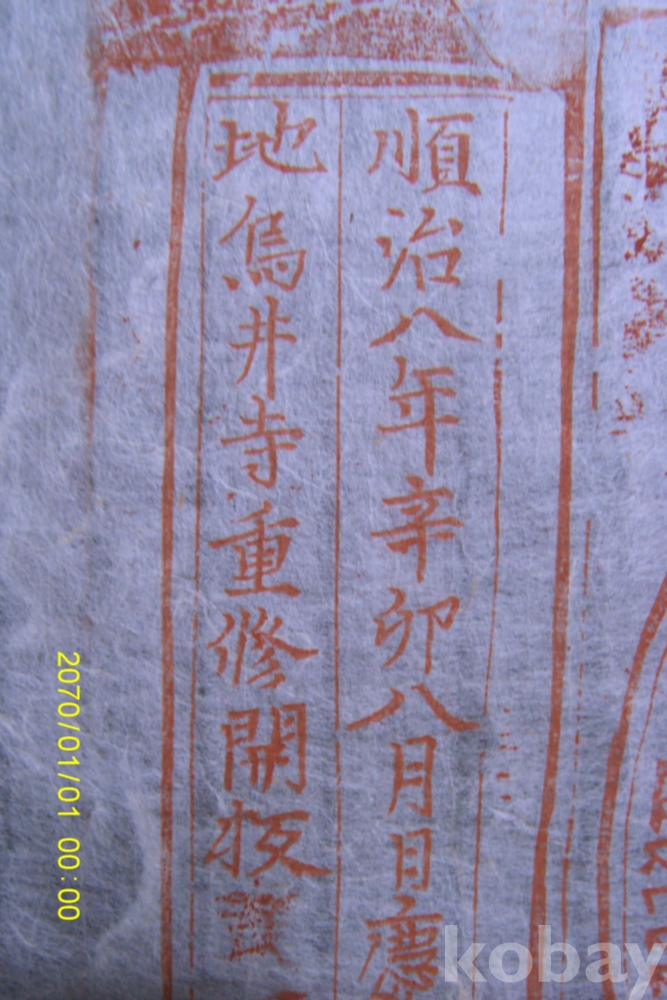 順治八年辛卯八月日
地烏井寺重修開板
2070/01/01 00:00
kobay